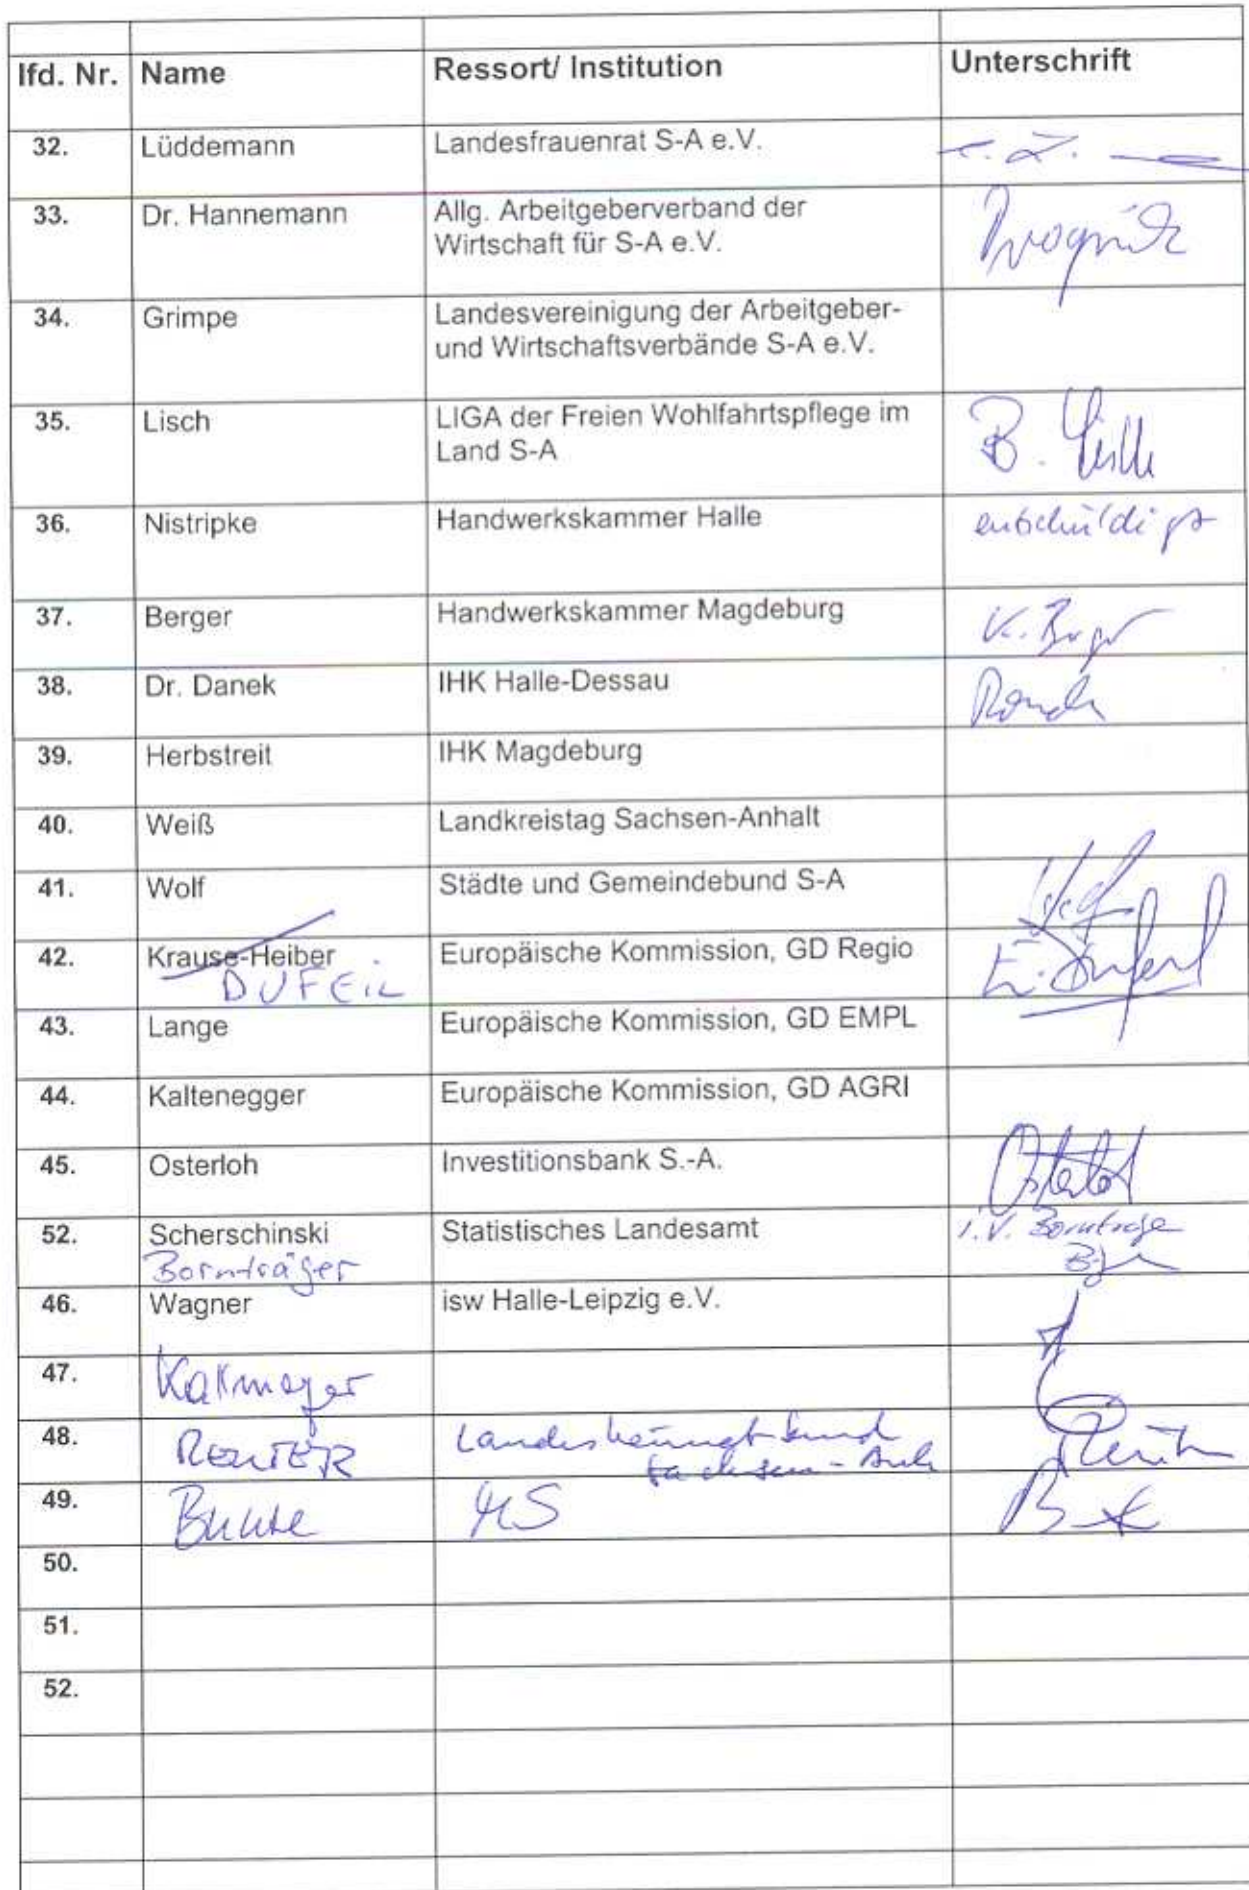 lfd. Nr. Name Ressort/ Institution Unterschrift
32. Lüddemann Landesfrauenrat S-A e.V.
33. Dr. Hannemann Allg. Arbeitgeberverband der
Wirtschaft für S-A e.V.
34. Grimpe Landesvereinigung der Arbeitgeber-
und Wirtschaftsverbände S-A e.V.
35. Lisch LIGA der Freien Wohlfahrtspflege im
Land S-A
36. Nistripke Handwerkskammer Halle entschuldigt
37. Berger Handwerkskammer Magdeburg
38. Dr. Danek IHK Halle-Dessau
39. Herbstreit IHK Magdeburg
40. Weiß Landkreistag Sachsen-Anhalt
41. Wolf Städte und Gemeindebund S-A
42. Krause-Heiber Europäische Kommission, GD Regio
DUFEIL
43. Lange Europäische Kommission, GD EMPL
44. Kaltenegger Europäische Kommission, GD AGRI
45. Osterloh Investitionsbank S.-A. Osterloh
52. Scherschinski Statistisches Landesamt i.V. Bornträger
Bornträger
46. Wagner isw Halle-Leipzig e.V.
47.
48. REUTER Landesheimatbund
Sachsen-Anh
49. MS
50.
51.
52.